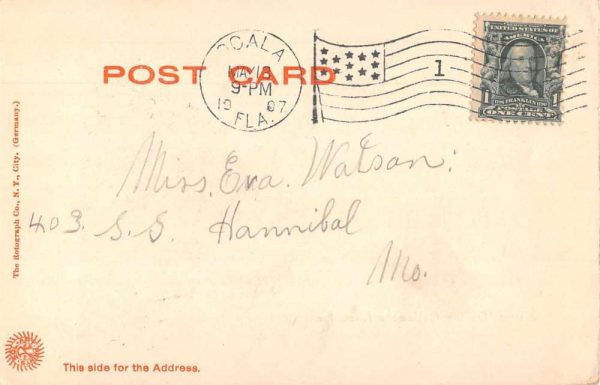 OCALA
MAY 13
9-PM
1907
FLA.
1
UNITED STATES OF
AMERICA
FRANKLIN
POSTAGE
1 ONE CENT 1
POST CARD
Miss. Eva. Watson:
403. S.S. Hannibal
Mo.
The Rotograph Co., N. Y., City. (Germany.)
This side for the Address.